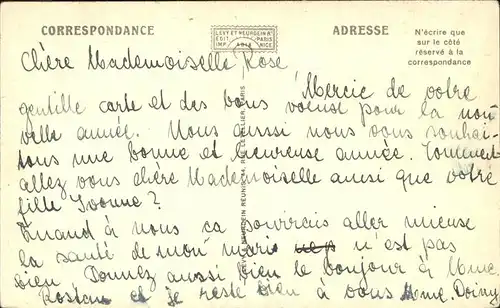 CORRESPONDANCE
LEVY ET NEURDEIN Rs
EDIT. PARIS
IMP. NICE
ADRESSE
N'écrire que
sur le côté
réservé à la
correspondance
Chère Mademoiselle Rose
Mercie de votre
gentille carte et des bons voeux pour la nou
velle année. Nous aussi nous vous souhai-
tons une bonne et heureuse année. Comment
allez vous chère Mademoiselle ainsi que votre
fille Yvonne?
Quand à nous ca pourrais aller mieuse
la santé de mon mari n'est pas
bien Donnez aussi bien le bonjour à Mme
et je reste bien à vous Mme